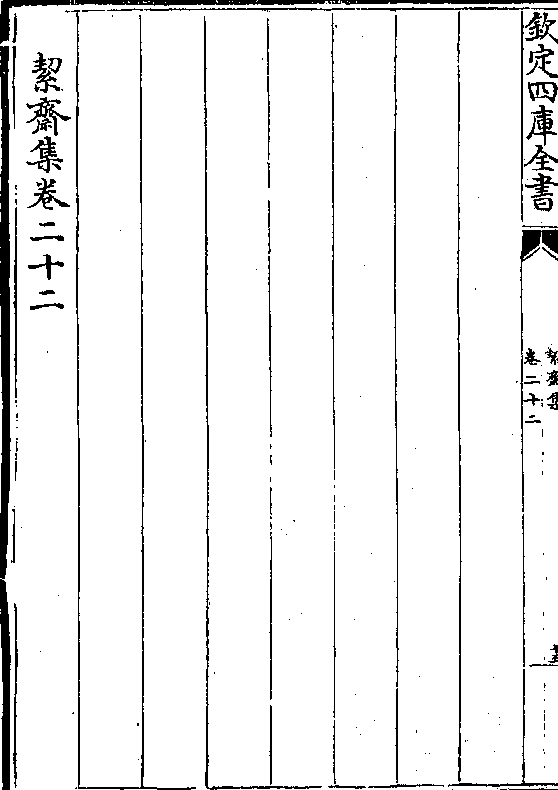 欽定四庫全書
絜齋集
卷二十二
絜齋集卷二十二